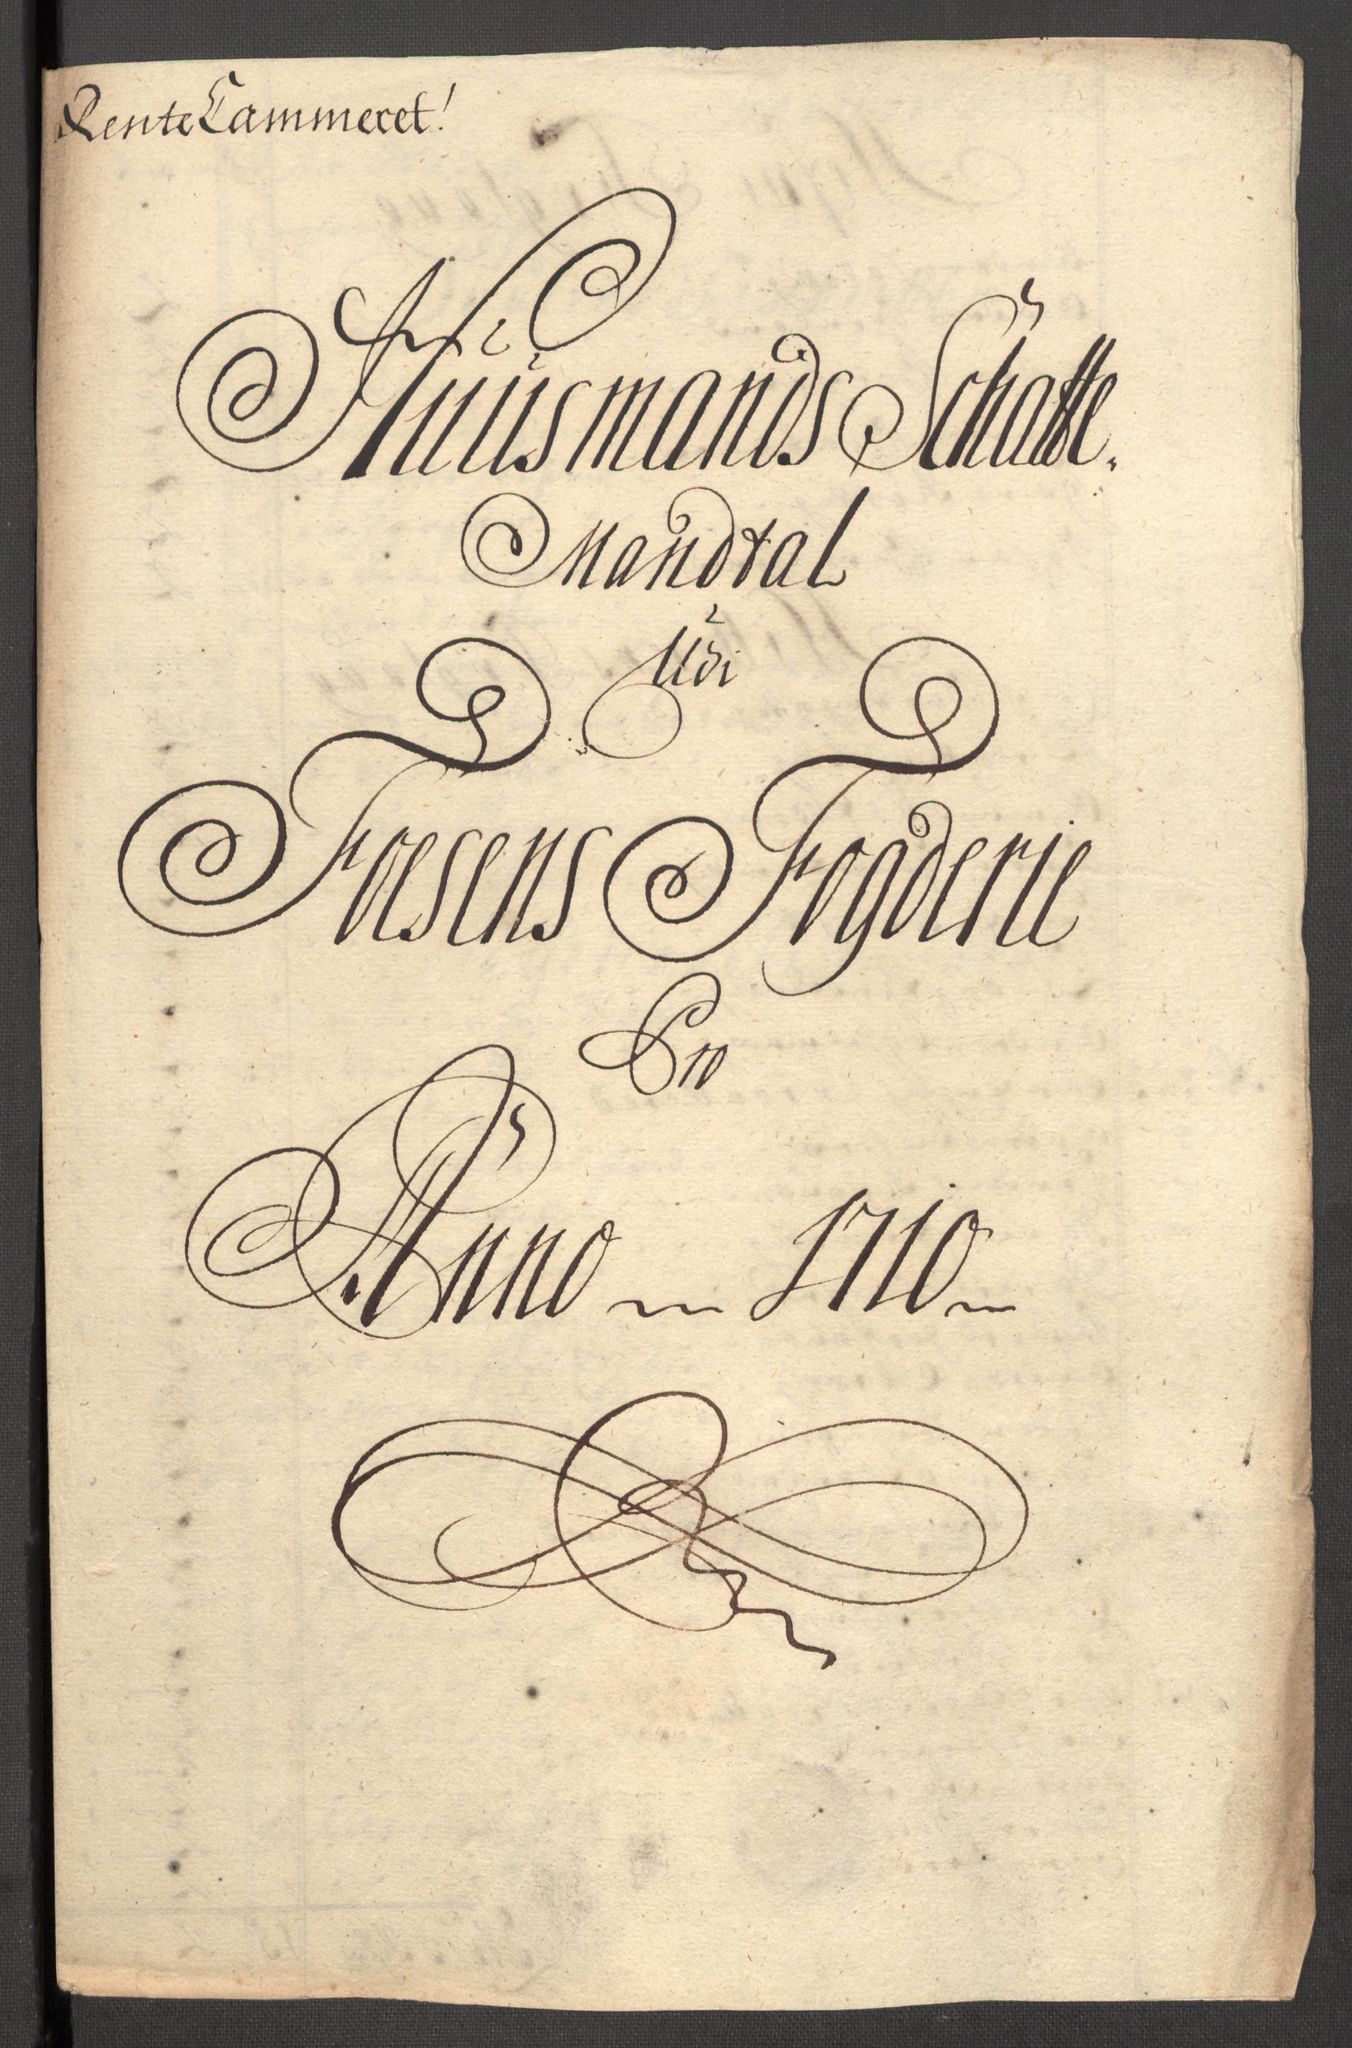 RenteCammeret!
Huusmands Schatte.
Mandtal
Udi
Foesens Fogderie
Pro
Anno 1710